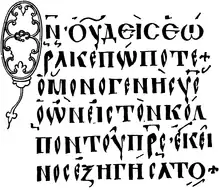 ΘΝ̅·ΟΥΔΕΙϹΕΩ
ΡΑΚΕΠΩΠΟΤΕ+
ΟΜΟΝΟΓΕΝΗϹΥ̅Ϲ̅
ΟΩΝΕΙϹΤΟΝΚΟΛ
ΠΟΝΤΟΥΠ̅Ρ̅Ϲ̅·ΕΚΕΙ
ΝΟϹΕΞΗΓΗϹΑΤΟ+